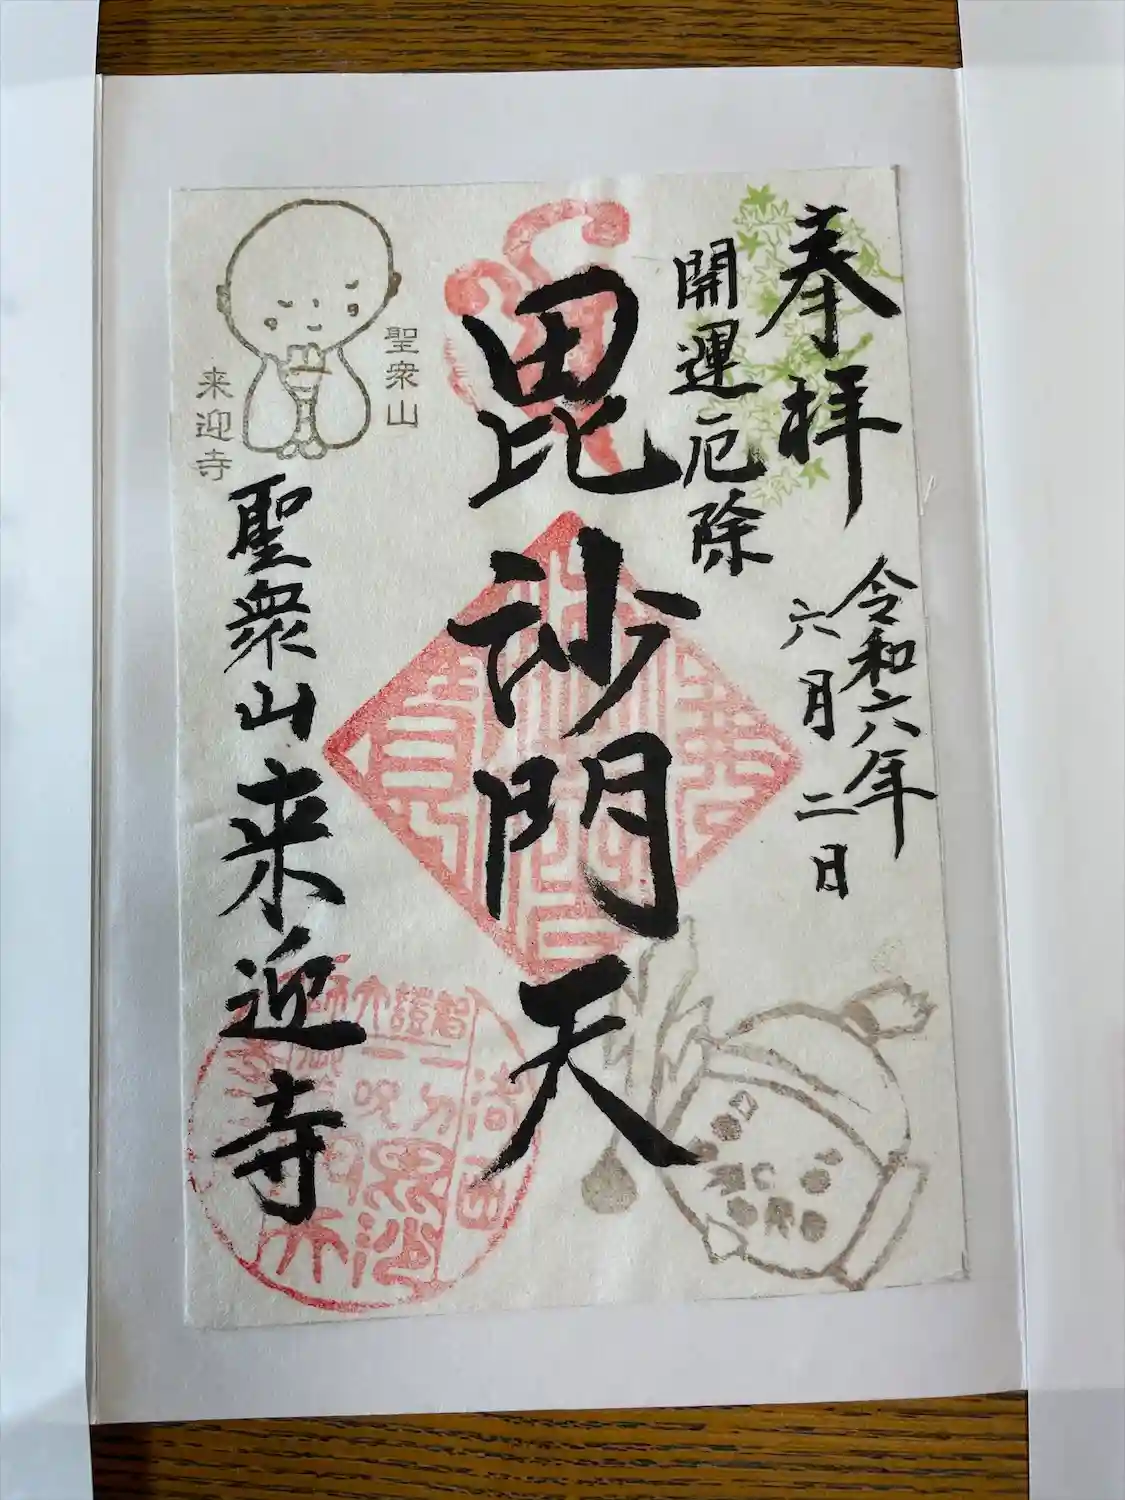 奉拝
開運厄除
令和六年
六月二日
毘沙門天
聖衆山
来迎寺
聖衆山来迎寺